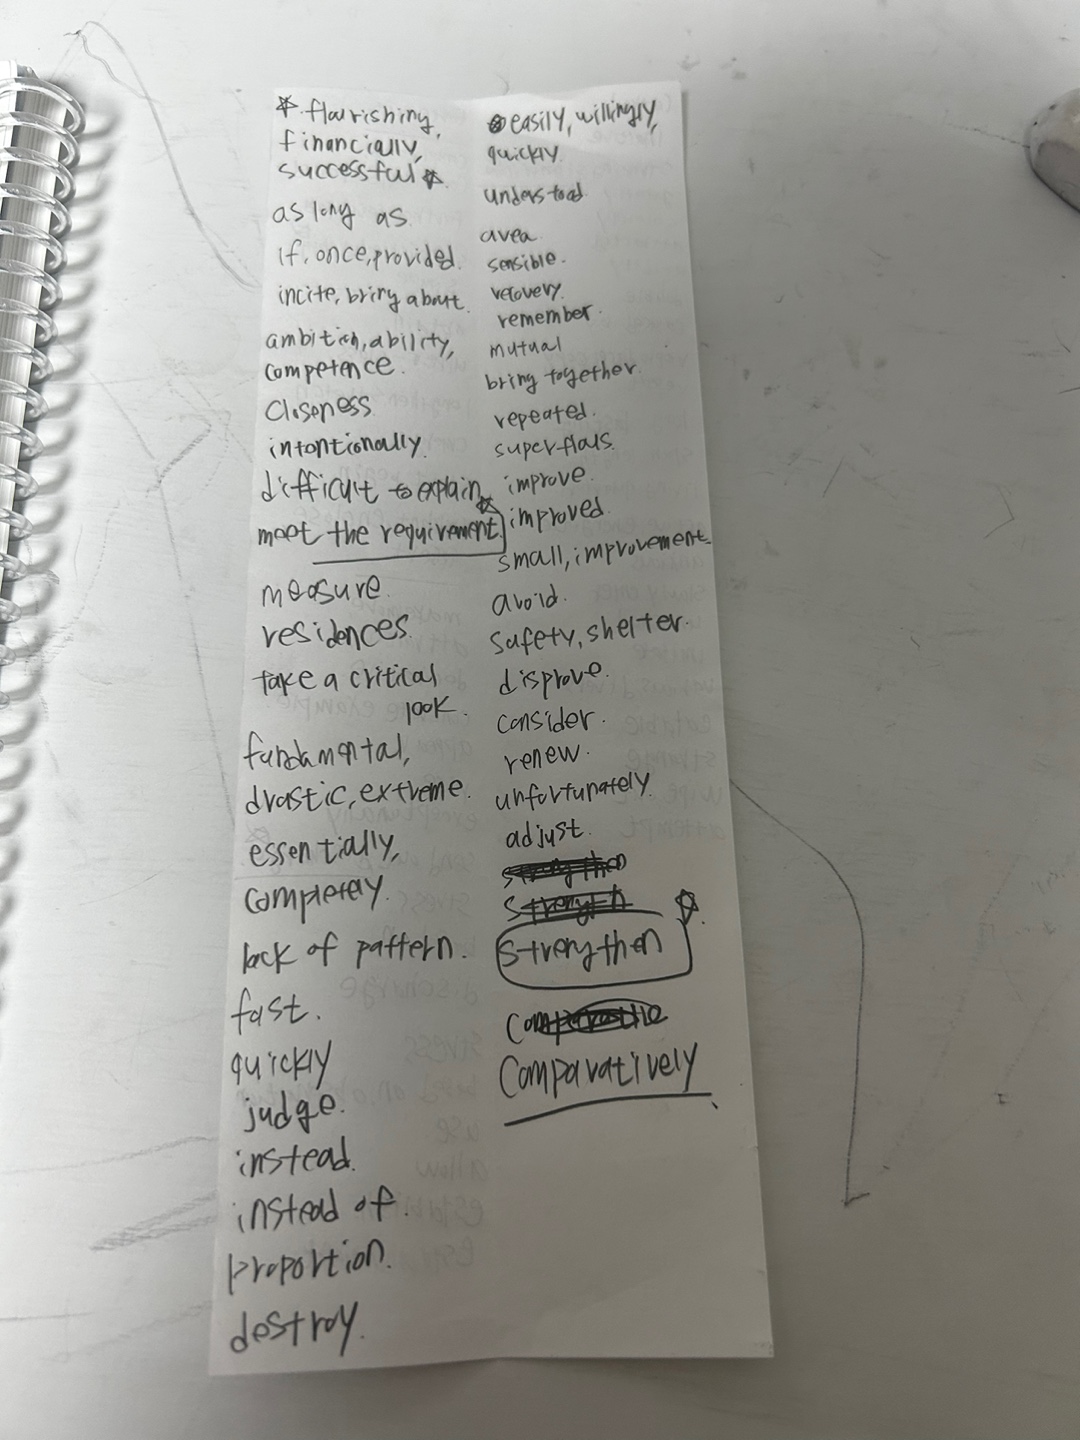 ☆ flourishing,
financially,
successful ☆.
as long as.
if, once, provided.
incite, bring about.
ambition, ability,
competence.
closeness.
intontionally.
difficult to explain.
meet the requirement.
measure.
residences.
take a critical
look.
fundamental,
drastic, extreme.
essentially,
completely.
lack of pattern.
fast.
quickly
judge.
instead.
instead of.
proportion.
destroy.
easily, willingly,
quickly.
understood.
area.
sensible.
recovery.
remember.
mutual
bring together.
repeated.
improve.
improved.
small, improvement.
avoid.
safety, shelter.
disprove.
consider.
renew.
unfortunately.
adjust.
strengthen
comparatively